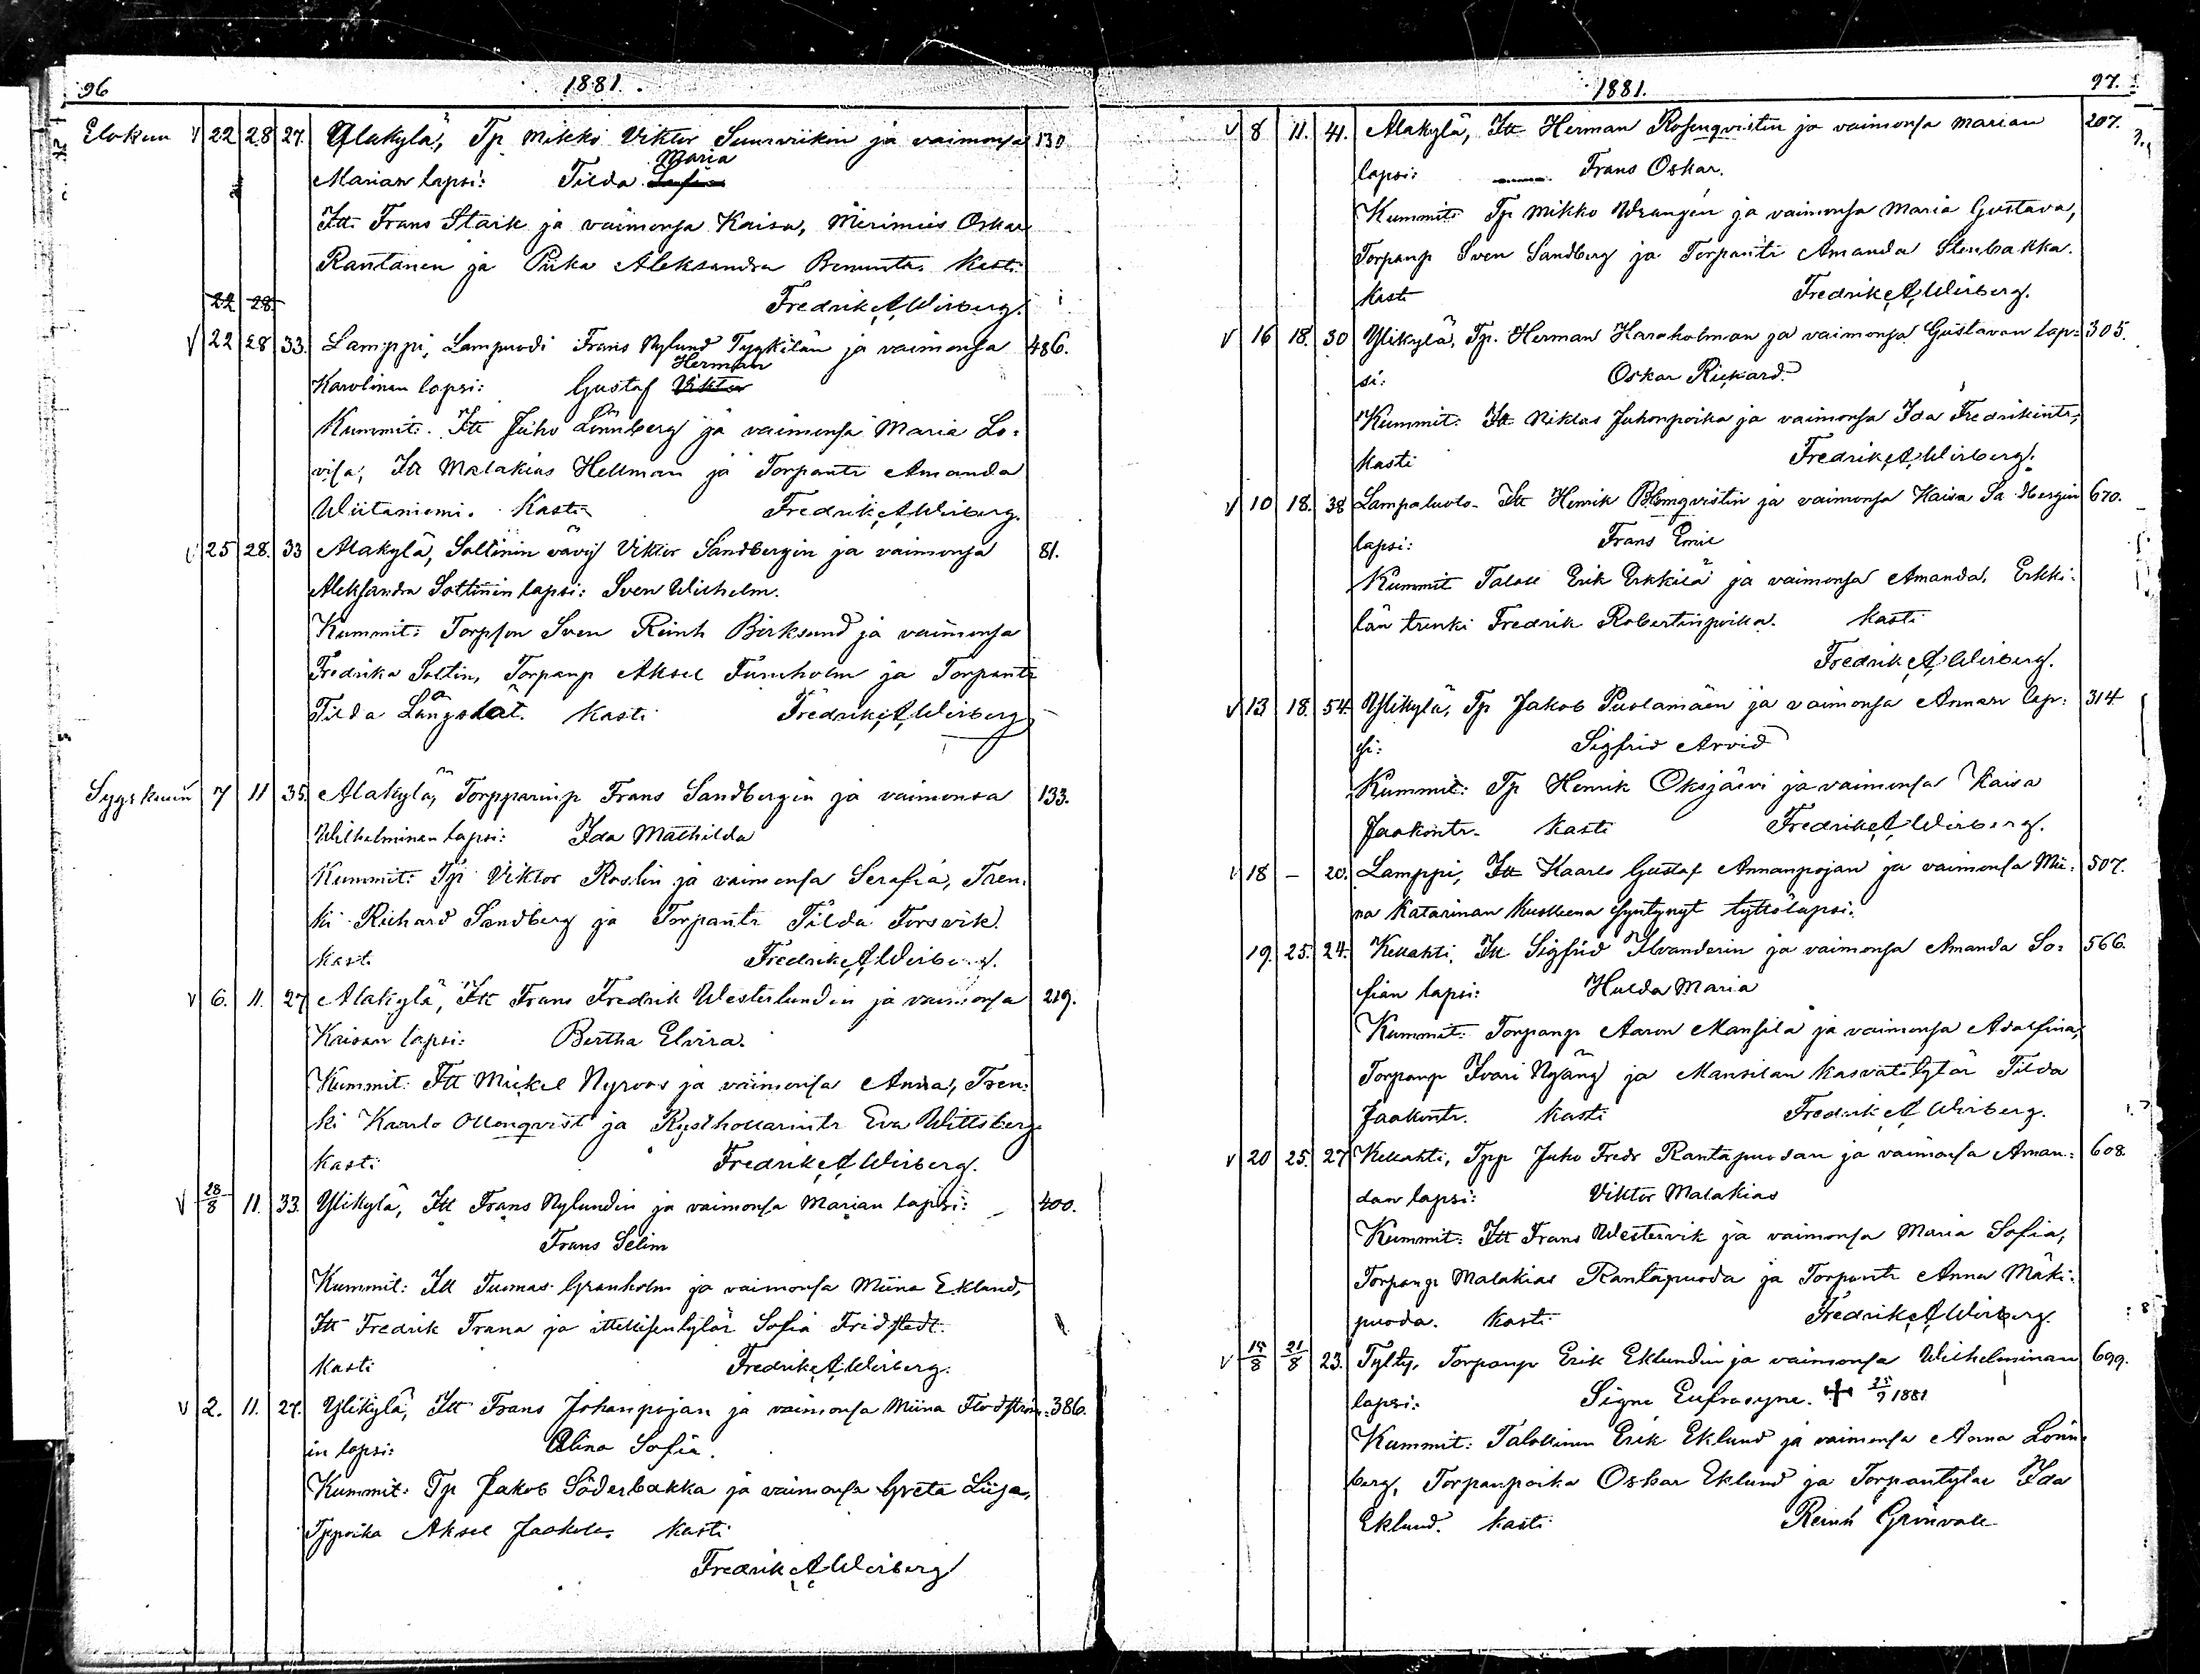 96
1881.
Elokuu V 22 28 27. Alakylä, Tp Mikko Viktor Suurviikin ja vaimonsa 130
Maria
Marian lapsi: Tilda Sofia
Itt. Frans Stark ja vaimonsa Kaisa, Merimies Oskar
Rantanen ja Piika Aleksandra Kasti
22 28. Fredrik A Wirberg.
V 22 28 33. Lamppi, Lampuodi Frans Nylund Tyykilän ja vaimonsa 486.
Herman
Karolinan lapsi: Gustaf Viktor
Kummit: Itt Juho Lönnberg ja vaimonsa Maria Lo-
visa, Itt Malakias Hellman ja Torpantr Amanda
Wiitaniemi. Kasti Fredrik A Wirberg.
V 25 28. 33 Alakylä, Saltinin vävy Viktor Sandbergin ja vaimonsa 81.
Aleksandra Soltinin lapsi: Sven Wilhelm.
Kummit: Sven Reinh Birksund ja vaimonsa
Fredrika Soltin, Torpanp Aksel Furuholm ja Torpantr
Tilda Långslät. Kasti Fredrik A Wirberg
Syyskuun 7 11 35. Alakylä, Torpparinp Frans Sandbergin ja vaimonsa 133.
Wilhelminan lapsi: Ida Mathilda
Kummit: Tp Viktor Roslin ja vaimonsa Serafia, Tren-
ki Richard Sandberg ja Torpantr Tilda Torsvik.
Kasti Fredrik A Wirberg.
V 6. 11. 27 Alakylä, Itt Frans Fredrik Westerlundin ja vaimonsa 219.
Kaisan lapsi: Bertha Elvira.
Kummit: Itt Mickel Nyroos ja vaimonsa Anna, Tren-
ki Kaarlo Ollonqvist ja Rysthollarintr Eva Wittsberg
Kasti Fredrik A Wirberg.
V 28/8 11. 33. Ylikylä, Itt Frans Nylundin ja vaimonsa Marian lapsi: 400.
Frans Selim
Kummit: Itt Tuomas Granholm ja vaimonsa Miina Eklund,
Itt Fredrik Trana ja ittellisentytär Sofia Fridstedt.
Kasti Fredrik A Wirberg.
V 2. 11. 27. Ylikylä, Itt Frans Johanpojan ja vaimonsa Miina Flodström- 386.
in lapsi: Alina Sofia.
Kummit: Tp Jakob Söderbakka ja vaimonsa Greta Liisa,
Tppoika Aksel Jaakola. Kasti
Fredrik A Wirberg
1881.
97.
V 8 11. 41. Alakylä, Itt Herman Rosenqvistin ja vaimonsa Marian 207.
lapsi: Frans Oskar.
Kummit: Tp Mikko Wrangen ja vaimonsa Maria Gustava,
Torpanp Sven Sandberg ja Torpantr Amanda Stenbakka.
Kasti Fredrik A Wirberg.
V 16 18. 30 Ylikylä, Tp. Herman Haraholman ja vaimonsa Gustavan lap- 305.
si: Oskar Rickard.
Kummit: Itt Niklas Juhonpoika ja vaimonsa Ida Fredrikintr,
Kasti Fredrik A Wirberg.
V 10 18. 38 Lampaluoto. Itt Henrik Blomqvistin ja vaimonsa Kaisa 670.
lapsi: Frans Emil
Kummit Talall Erik Erkkilä ja vaimonsa Amanda, Erkki-
län trenki Fredrik Robertinpoika. Kasti
Fredrik A Wirberg.
V 13 18. 54. Ylikylä, Tp Jakob Puolamäen ja vaimonsa Annan lap- 314
si: Sigfrid Arvid
Kummit: Tp Henrik Oksjärvi ja vaimonsa Kaisa
Jaakontr. Kasti Fredrik A Wirberg.
V 18 – 20. Lamppi, Itt Kaarlo Gustaf Annanpojan ja vaimonsa Mii- 507.
na Katarinan kuolleena syntynyt tyttölapsi.
19. 25. 24. Kellahti, Itt Sigfrid Ilvanderin ja vaimonsa Amanda So- 566.
fian lapsi: Hulda Maria
Kummit: Torpanp Aaron Mansila ja vaimonsa Adolfina,
Torpanp Ivari Nyäng ja Mansilan kasvatitytär Tilda
Jaakontr. Kasti Fredrik A Wirberg.
V 20 25. 27 Kellahti, Tpp Juho Fredr Rantapuodan ja vaimonsa Aman- 608
dan lapsi: Viktor Malakias
Kummit: Itt Frans Westervik ja vaimonsa Maria Sofia,
Torpanp Malakias Rantapuoda ja Torpantr Anna Mäki-
puoda. Kasti Fredrik A Wirberg.
V 15/8 21/8 23. Tylty, Torpanp Erik Eklundin ja vaimonsa Wilhelminan 699.
lapsi: Signe Eufrosyne. + 25/9 1881
Kummit: Talollinen Erik Eklund ja vaimonsa Anna Lönn-
berg, Torpanpoika Oskar Eklund ja Torpantytär Ida
Eklund. Kasti Reinh Grönvall